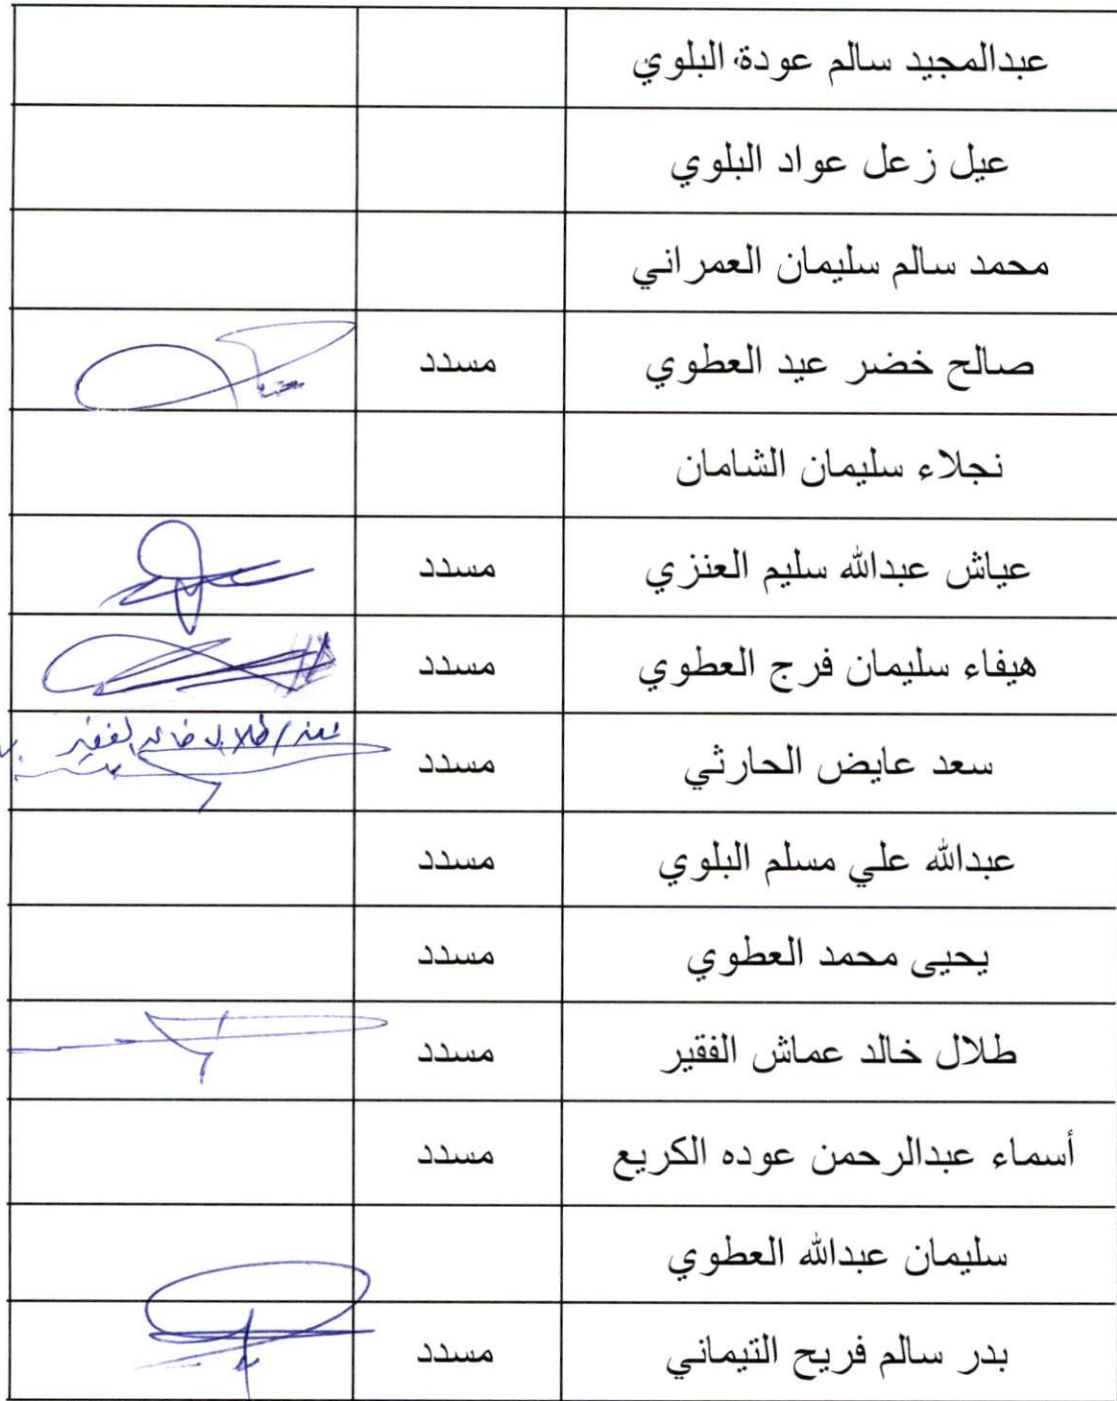 عبدالمجيد سالم عودة البلوي
عيل زعل عواد البلوي
محمد سالم سليمان العمراني
صالح خضر عيد العطوي مسدد
نجلاء سليمان الشامان
عياش عبدالله سليم العنزي مسدد
هيفاء سليمان فرج العطوي مسدد
سعد عايض الحارثي مسدد طلال خالد الفقير
عبدالله علي مسلم البلوي مسدد
يحيى محمد العطوي مسدد
طلال خالد عماش الفقير مسدد
أسماء عبدالرحمن عوده الكريع مسدد
سليمان عبدالله العطوي
بدر سالم فريح التيماني مسدد